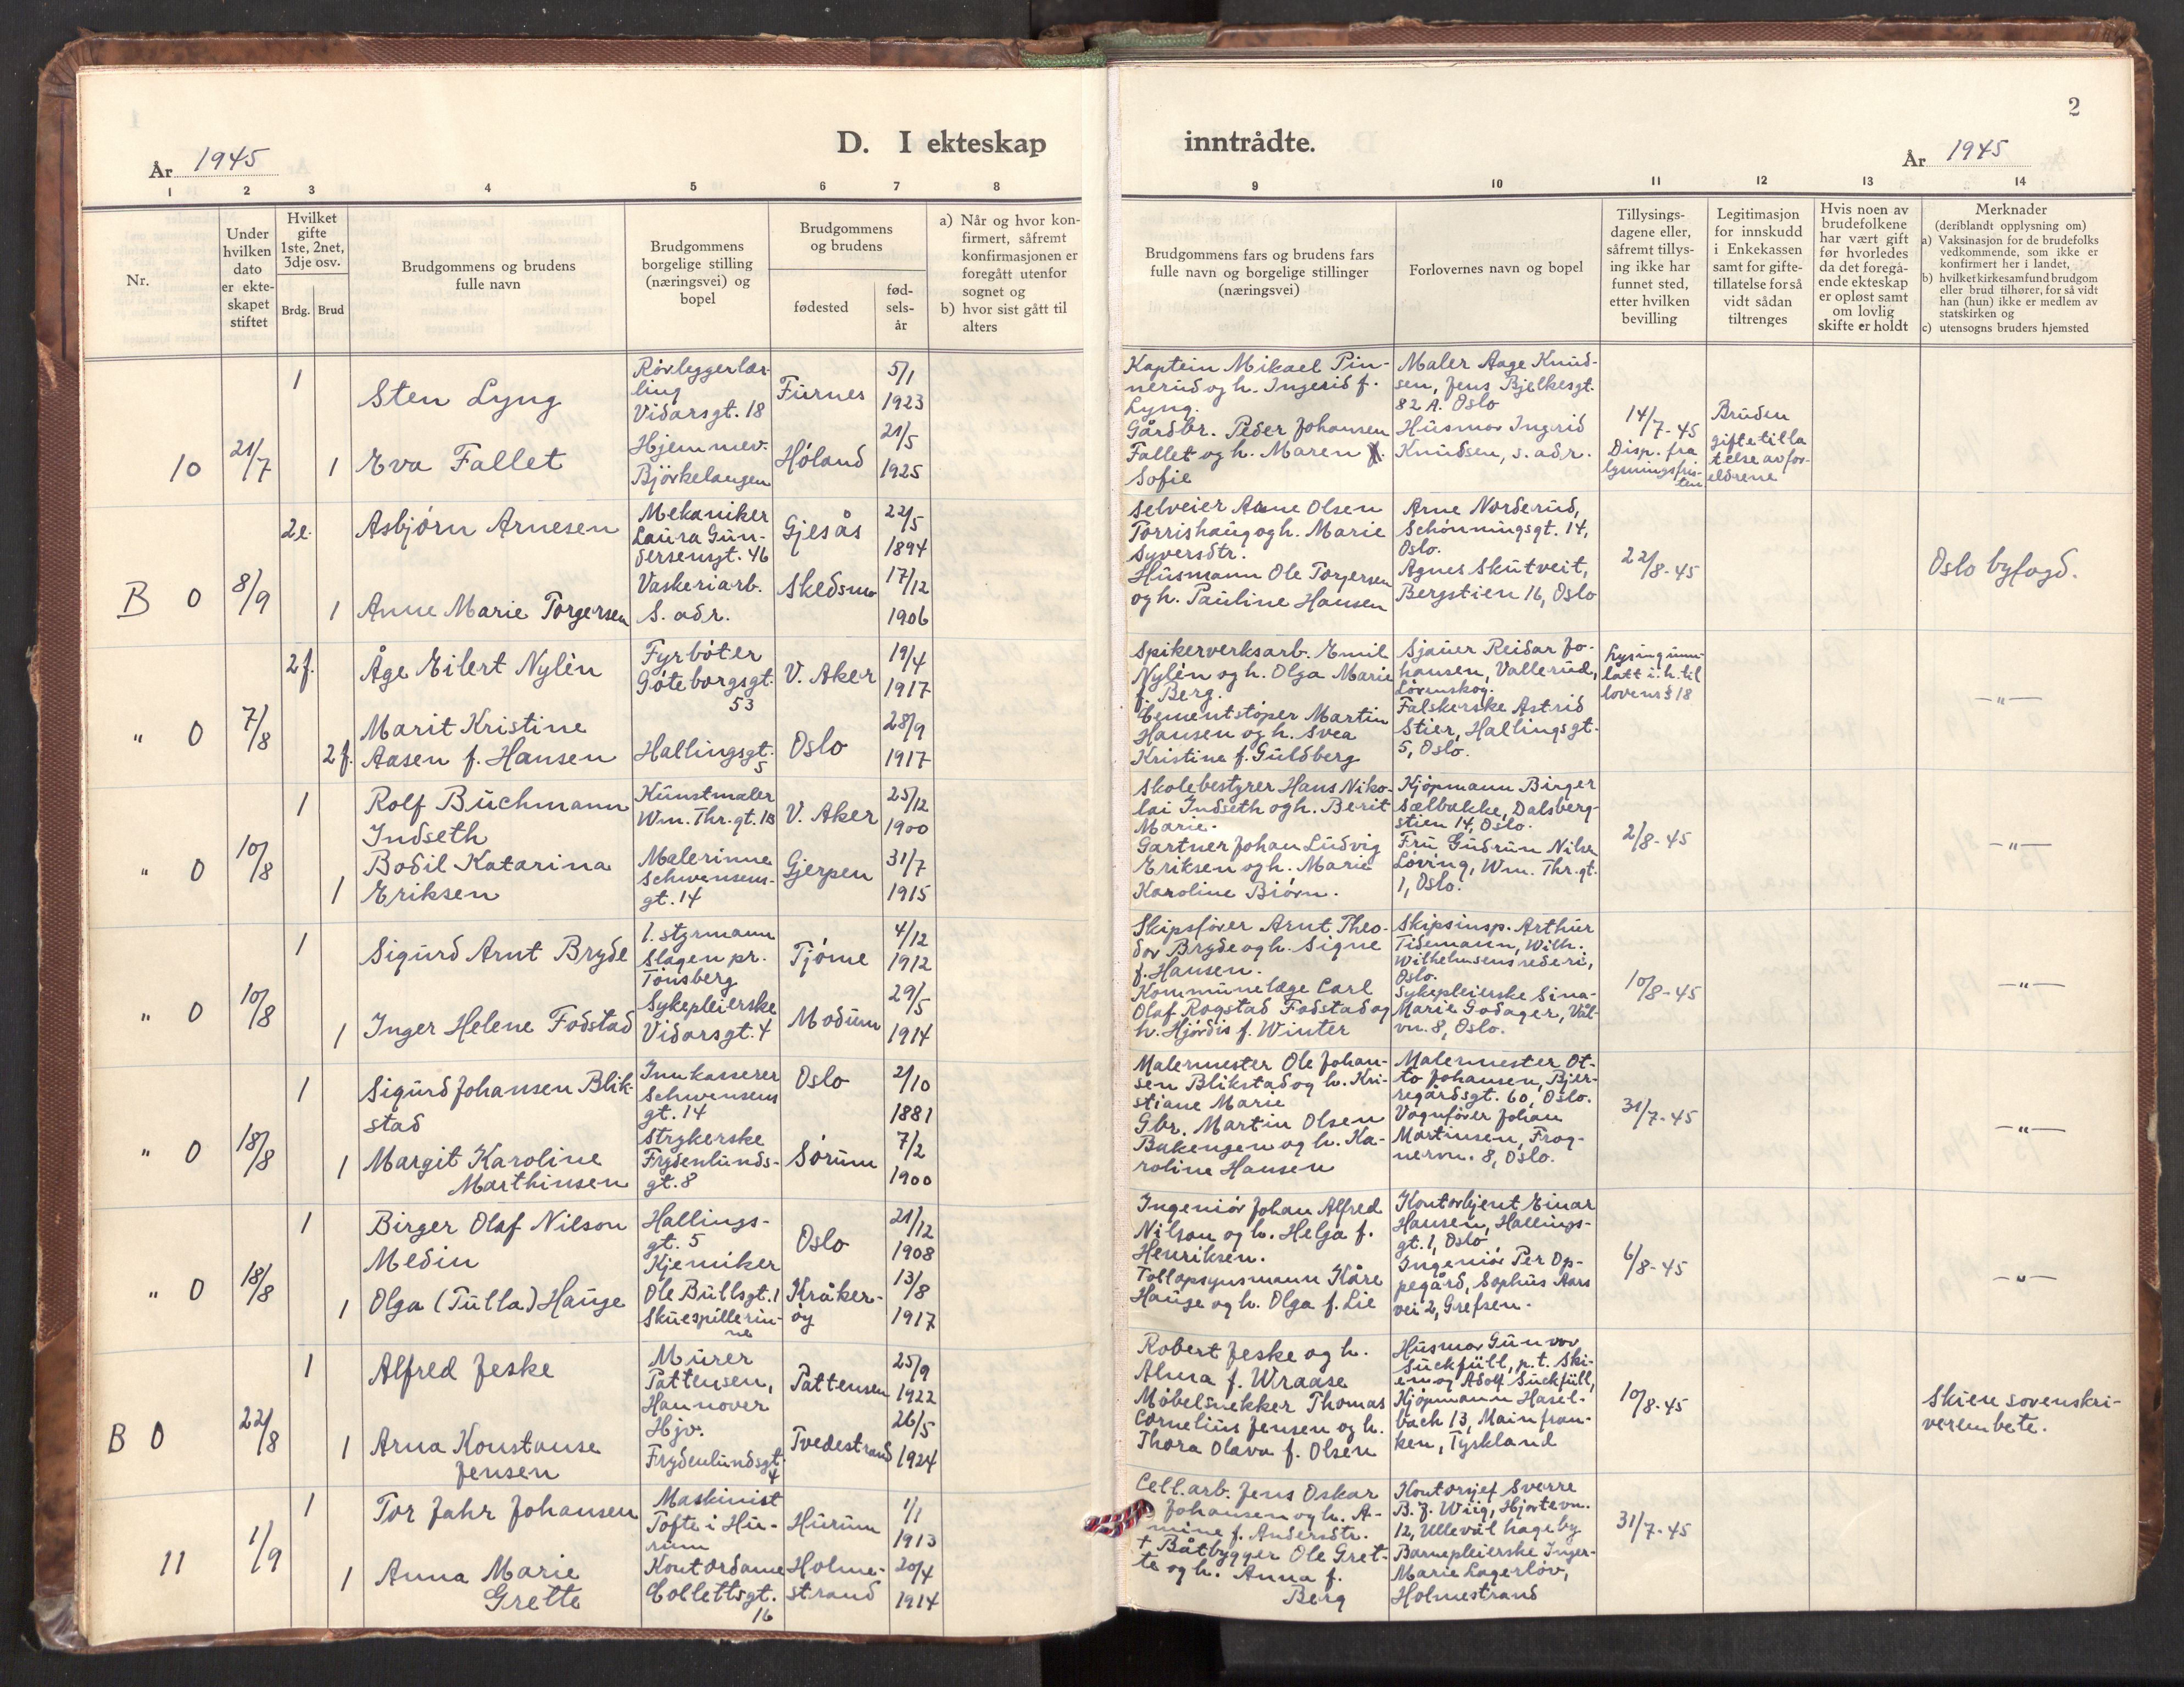 2
D. I ekteskap inntrådte.
År 1945
År 1945
1 2 3 4 5 6 7 8 9 10 11 12 13 14
Nr.
Under hvilken dato er ekteskapet stiftet
Hvilket gifte 1ste, 2net, 3dje osv.
Brdg. Brud
Brudgommens og brudens fulle navn
Brudgommens borgelige stilling (næringsvei) og bopel
Brudgommens og brudens
fødested
fødselsår
a) Når og hvor konfirmert, såfremt konfirmasjonen er foregått utenfor sognet og
b) hvor sist gått til alters
Brudgommens fars og brudens fars fulle navn og borgelige stillinger (næringsvei)
Forlovernes navn og bopel
Tillysingsdagene eller, såfremt tillysing ikke har funnet sted, etter hvilken bevilling
Legitimasjon for innskudd i Enkekassen samt for giftetillatelse forså vidt sådan tiltrenges
Hvis noen av brudefolkene har vært gift før hvorledes da det foregående ekteskap er opløst samt om lovlig skifte er holdt
Merknader
(deriblandt opplysning om)
a) Vaksinasjon for de brudefolks vedkommende, som ikke er konfirmert her i landet,
b) hvilket kirkesamfund brudgom eller brud tilhører, for så vidt han (hun) ikke er medlem av statskirken og
c) utensogns bruders hjemsted
10 21/7
1 Sten Lyng
Rörleggerlærling
Vidarsgt. 18
Furnes 5/1 1923
1 Eva Fallet
Hjemmev.
Björkelangen
Høland 21/5 1925
Kaptein Mikael Pinnerud og h. Ingerid f. Lyng.
Gårdbr. Peder Johansen Fallet og h. Maren Sofie
Maler Aage Knudsen, Jens Bjelkesgt. 82 A. Oslo
Husmor Ingrid Knudsen, s. adr.
14/7-45
Disp. fra lysningsfristen
Bruden giftetillatelse av foreldrene
B 0 8/9
2e. Asbjørn Arnesen
Mekaniker
Laura Gundersensgt. 46
Gjesås 22/5 1894
1 Anne Marie Torgersen
Vaskeriarb.
S. adr.
Skedsmo 17/12 1906
Selveier Arne Olsen Torrishaug og h. Marie Syversdtr.
Husmann Ole Torgersen og h. Pauline Hansen
Arne Norderud, Schønningsgt. 14, Oslo.
Agnes Skutveit, Bergstien 16, Oslo
22/8-45
Oslo byfogd.
" 0 7/8
2f. Åge Eilert Nylén
Fyrbøter
Göteborgsgt. 53
V. Aker 19/4 1917
2f. Marit Kristine Aasen f. Hansen
Hallingsgt. 5
Oslo 28/9 1917
Spikerverksarb. Emil Nylén og h. Olga Marie f. Berg.
Cementstøper Martin Hansen og h. Svea Kristine f. Guldberg
Sjauer Reidar Johansen, Vallerud, Lørenskog.
Falskerske Astrid Stier, Hallingsgt. 5, Oslo.
Lysing unnlatt i. h. til lovens § 18
— " —
" 0 10/8
1 Rolf Buchmann Indseth
Kunstmaler
Wm. Thr. gt. 1B
V. Aker 25/12 1900
1 Bodil Katarina Eriksen
Malerinne
Schwensensgt. 14
Gjerpen 31/7 1915
Skolebestyrer Hans Nikolai Indseth og h. Berit Marie.
Gartner Johan Ludvig Eriksen og h. Marie Karoline Bjørn.
Kjøpmann Birger Sælbakke, Dalsbergstien 14, Oslo.
Fru Gudrun Nilsen Løving, Wm. Thr. gt. 1, Oslo.
2/8-45
— " —
" 0 10/8
1 Sigurd Arnt Bryde
1. styrmann
Slagen pr. Tönsberg
Tjøme 4/12 1912
1 Inger Helene Fodstad
Sykepleierske
Vidarsgt. 4
Modum 29/5 1914
Skipsfører Arnt Theodor Bryde og h. Signe f. Hansen.
Kommunelæge Carl Olaf Rogstad Fodstad og h. Hjørdis f. Winter
Skipsinsp. Arthur Tidemann, Wilh. Wilhelmsens rederi, Oslo.
Sykepleierske Sina-Marie Godager, Vålvn. 8, Oslo.
10/8-45
— " —
" 0 18/8
1 Sigurd Johansen Blikstad
Innkasserer
Schwensens gt. 14
Oslo 2/10 1881
1 Margit Karoline Marthinsen
Strykerske
Frydenlundsgt. 8
Sørum 7/2 1900
Malermester Ole Johansen Blikstad og h. Kristiane Marie
Gbr. Martin Olsen Bakengen og h. Karoline Hansen
Malermester Otto Johansen, Bjerregårdsgt. 60, Oslo.
Vognfører Johan Martinsen, Frognervn. 8, Oslo.
31/7-45
— " —
" 0 18/8
1 Birger Olaf Nilson Medin
Hallingsgt. 5
Kjemiker
Oslo 21/12 1908
1 Olga (Tulla) Hauge
Ole Bullsgt. 1
Skuespillerinne
Kråkerøy 13/8 1917
Ingeniør Johan Alfred Nilson og h. Helga f. Henriksen.
Tollopsynsmann Kåre Hauge og h. Olga f. Lie
Kontorbjent Einar Hansen, Hallingsgt. 1, Oslo
Ingeniør Per Oppegård, Sophus Aars vei 2, Grefsen.
6/8-45
— " —
B 0 22/8
1 Alfred Jeske
Murer
Pattensen, Hannover
Pattensen 25/9 1922
1 Arna Konstanse Jensen
Hjv.
Frydenlundsgt. 4
Tvedestrand 26/5 1924
Robert Jeske og h. Alma f. Wraase
Møbelsnekker Thomas Cornelius Jensen og h. Thora Olava f. Olsen
Husmor Gunvor Suckfüll, p.t. Skien og Adolf Suckfüll, Kjøpmann Haselbach 13, Mainfranken, Tyskland
10/8-45
Skien sorenskriverembete.
11 1/9
1 Tor Jahr Johansen
Maskinist
Tofte i Hurum
Hurum 1/1 1913
1 Anna Marie Grette
Kontordame
Collettsgt. 16
Holmestrand 20/4 1914
Cell.arb. Jens Oskar Johansen og h. Amine f. Andersdtr.
+ Båtbygger Ole Grette og h. Anna f. Berg
Kontorsjef Sverre B. J. Wiig, Hjortevn. 12, Ullevål hageby
Barnepleierske Inger-Marie Lagerløv, Holmestrand
31/7-45